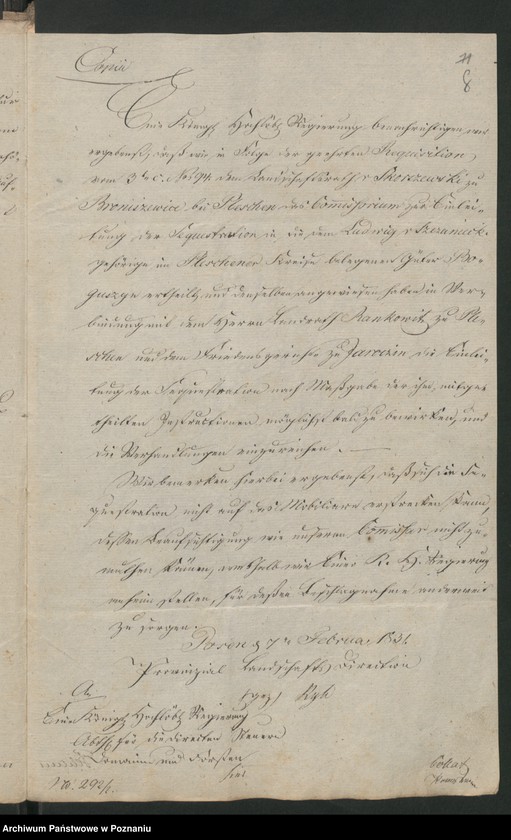 Copia
8
Eine Königl Hochlöbl Regierung benachrichtigen wir
ergebenst, daß wir in Folge der geehrten Requisition
vom 3t c. No 94 dem Landschaftsrath v Skorzewski zu
Broniszewice bei Pleschen das Commissorium zur Einlei-
tung der Sequestration in die dem Ludwig v
gehörige im Pleschener Kreise belegenen Güter Bo-
guszyn ertheilt und denselben angewiesen haben in Ver-
bindung mit dem Herrn Landrath Rankowitz zu Ple-
schen und dem Friedensgericht zu Jarocin, die Einlei-
tung der Sequestration nach Maßgabe der ihm mitge-
theilten Instructionen möglichst bald zu bewirken, und
die Verhandlungen einzureichen.
Wir bemerken hierbei ergebenst, daß sich die Se-
questration nicht auf das Mobiliare erstrecken kann,
dessen Beaufsichtigung wir unserm Commissar nicht zu-
muthen können, weshalb wir Einer K. H. Regierung
anheim stellen, für dessen Beschlagnahme anderweit
zu sorgen.
Posen d 7n Februar 1831
Provinzial Landschafts Direction
(gez)
An
Eine Königl Hochlöbl Regierung
Abth. für die direkten Steuern
Domainen und Forsten
hier
No. 292/2.
Archiwum Państwowe w Poznaniu